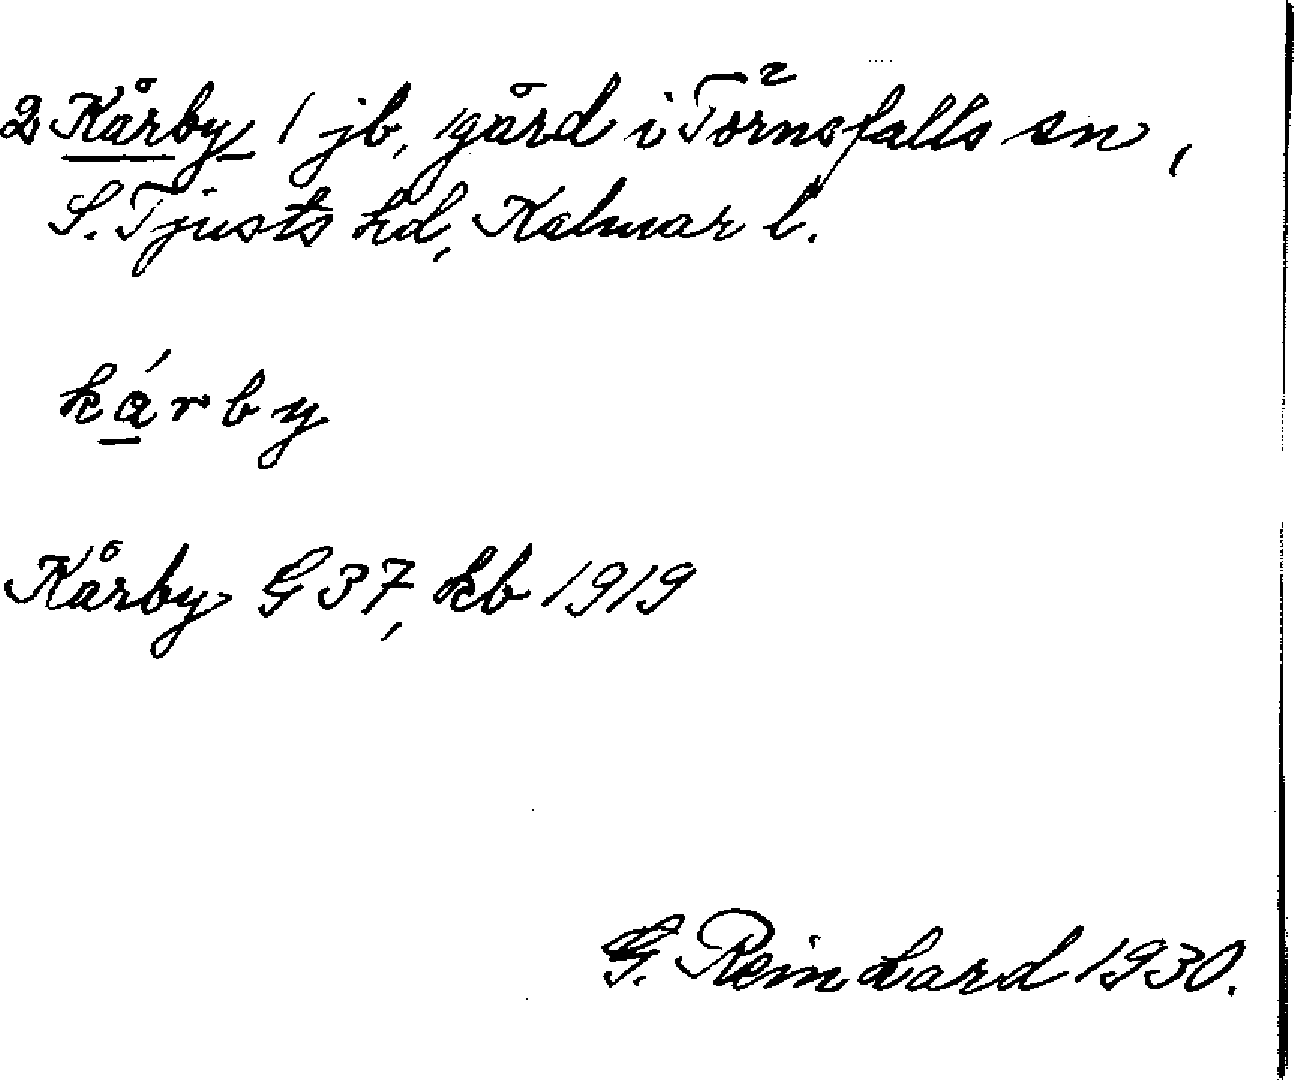 2 Kårby 1 jb, gård i Törnsfalls sn,
S. Tjusts hd, Kalmar l.
kárby
Kårby G 37, kb 1919
G. Reinhard 1930.